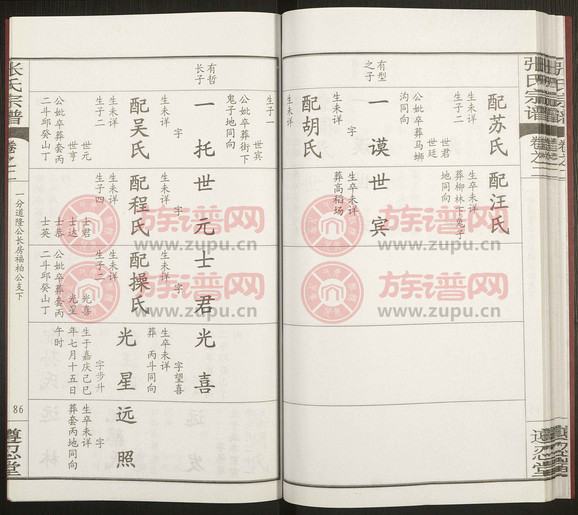 張氏宗譜
卷之二
配苏氏
生未详
生子二
世君
世廷
公妣卒葬马蛳
沟同向
有型
之子
一谟
字
生未详
配胡氏
生未详
配汪氏
生卒未详
葬柳林下兔子
地同向
世宾
字
生卒未详
葬高稻场
生子一
世宾
公妣卒葬街下
兔子地同向
有哲
长子
一托
字
生未详
配吴氏
生未详
生子二
世元
世亨
公妣卒葬套丙
二斗邱癸山丁
世元
字
生未详
配程氏
生未详
生子四
士君
士达
士恭
士英
士君
字
生未详
配操氏
生未详
生子二
光喜
光星
公妣卒葬套丙
二斗邱癸山丁
光喜
字望喜
生卒未详
葬丙斗同向
光星
字步升
生于嘉庆己巳
年七月十五日
午时
远照
字
生卒未详
葬套丙地同向
张氏宗谱
卷之二
一分道隆公长房福柏公支下
86
遵忍堂
族谱网
www.zupu.cn
族谱网
www.zupu.cn
族谱网
www.zupu.cn
族谱网
www.zupu.cn